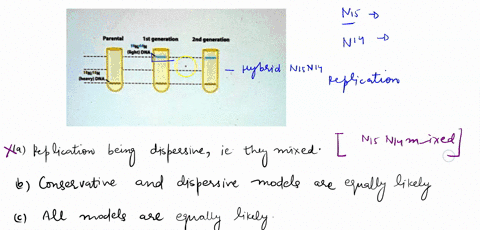 N15 →
N14 →
Parental 1st generation 2nd generation
14N/14N
(light) DNA
15N/15N
(heavy) DNA
Hybrid N15 N14
Replication
X(a) Replication being dispersive, ie they mixed. [ N15 N14 mixed ]
(b) Conservative and dispersive models are equally likely
(c) All models are equally likely.